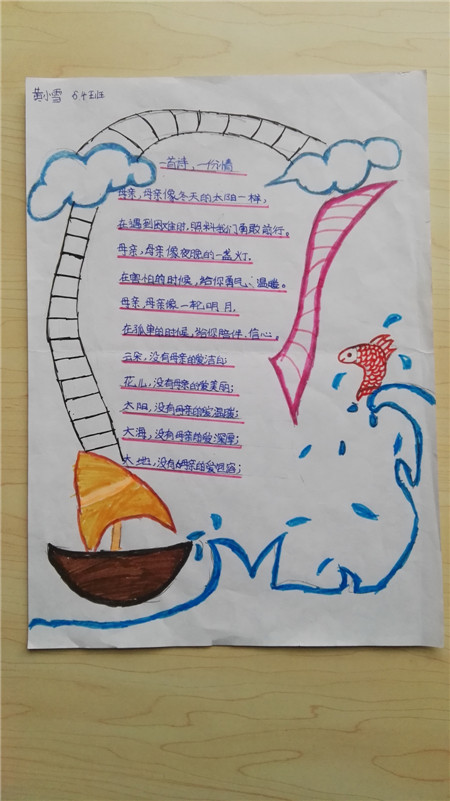 黄小雪 六4班
一首诗，一份情
母亲，母亲像冬天的太阳一样，
在遇到困难时，照料我们勇敢前行。
母亲，母亲像夜晚的一盏灯，
在害怕的时候，给你勇气、温暖。
母亲，母亲像一轮明月，
在孤单的时候，给你陪伴、信心。
云朵，没有母亲的爱洁白；
花儿，没有母亲的爱美丽；
太阳，没有母亲的爱温暖；
大海，没有母亲的爱深厚；
大地，没有母亲的爱宽容；